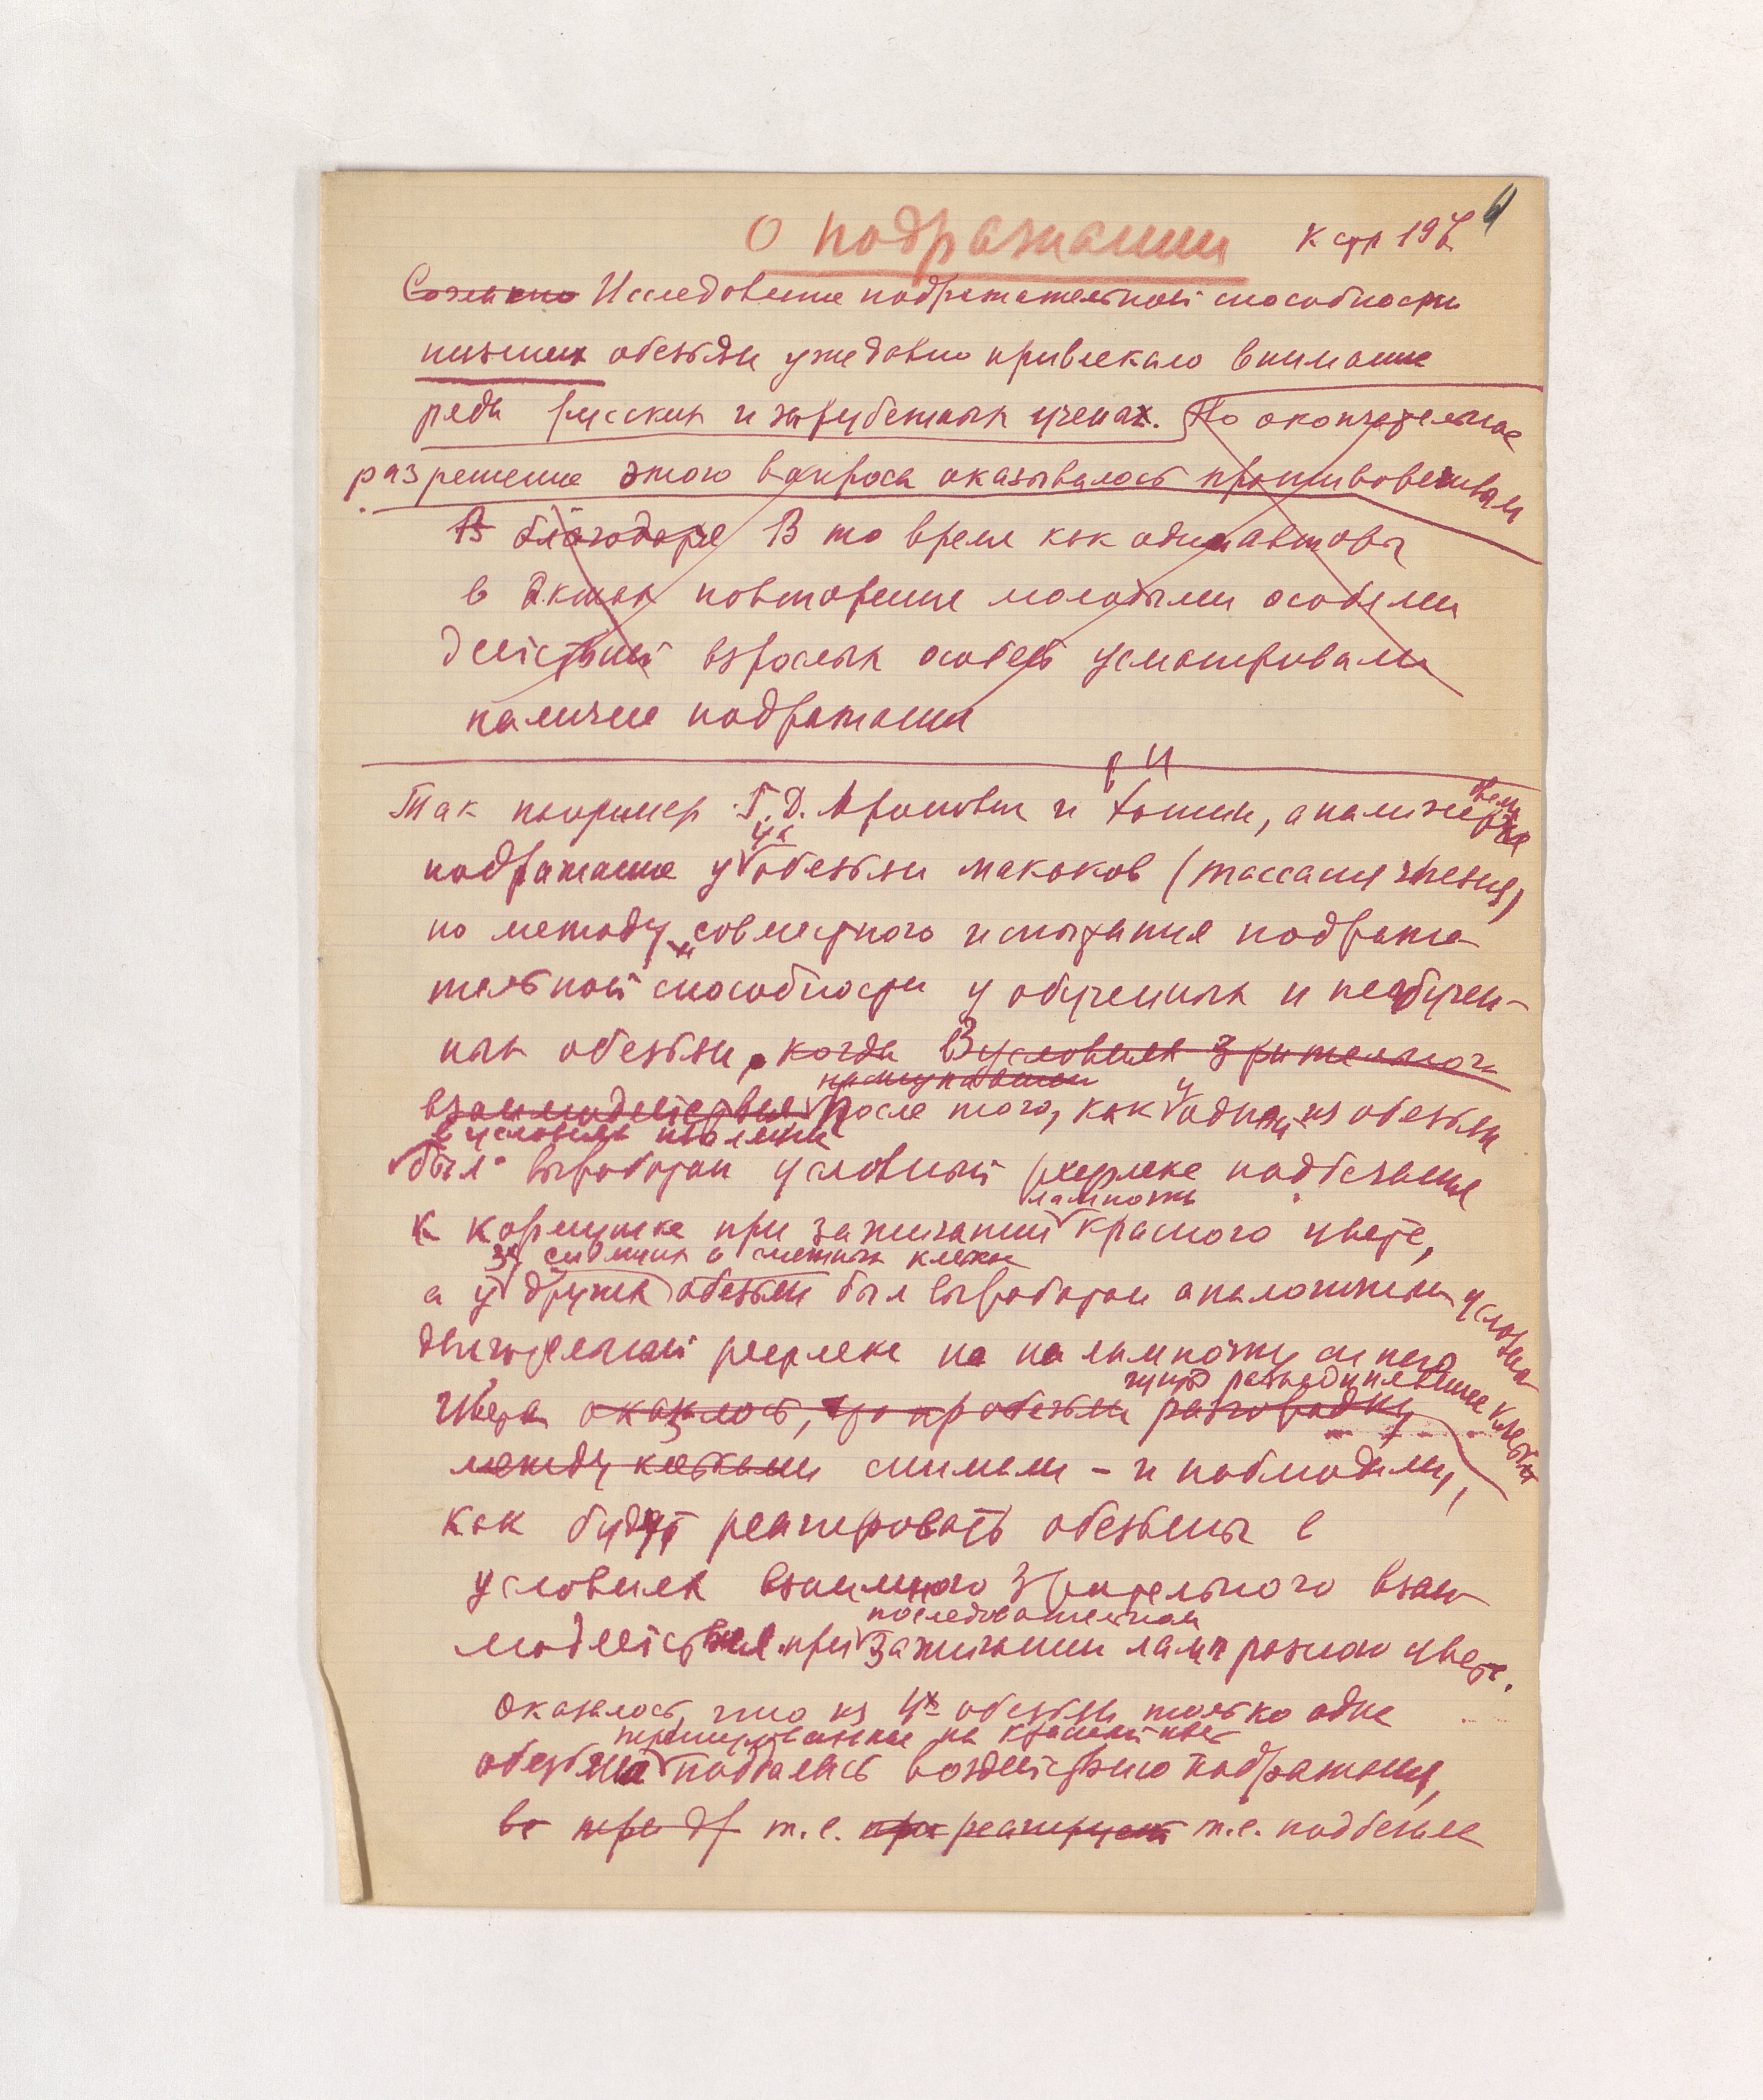 О подражании к стр 197
Согласно Исследование подражательной способности
низших обезьян уже давно привлекало внимание
ряда русских и зарубежных ученых. Но окончательное
разрешение этого вопроса оказывалось противоречивым
В благодаря В то время как одни авторы
в актах повторение молодыми особями
действий взрослых особей усматривали
наличие подражания
Так например Г. Д. Аронович и Хотин,
4х
подражание у обезьян макаков
по методу совместного испытания подража-
тельной способности у обученных и необучен-
ных обезьян, когда В условиях зрительного
взаимодействия После того, как у одной из обезьян
в условиях изоляции
был выработан условный рефлекс подбегания
лампочки
к кормушке при зажигании красного цвета,
3х сидящих в смежных клетках
а у других обезьян был выработан аналогичный условный
двигательный рефлекс на на лампочку синего
цвета оказалось, что обезьяны разгородку
между клетками снимали – и наблюдали,
как будут реагировать обезьяны в
условиях взаимного зрительного взаи-
последовательном
модействия при зажигании ламп разного цвета.
Оказалось, что из 4х обезьян только одна
тренированная на красный цвет
обезьяна поддалась воздействию подражания,
т.е. реагирует т.е. подбегала